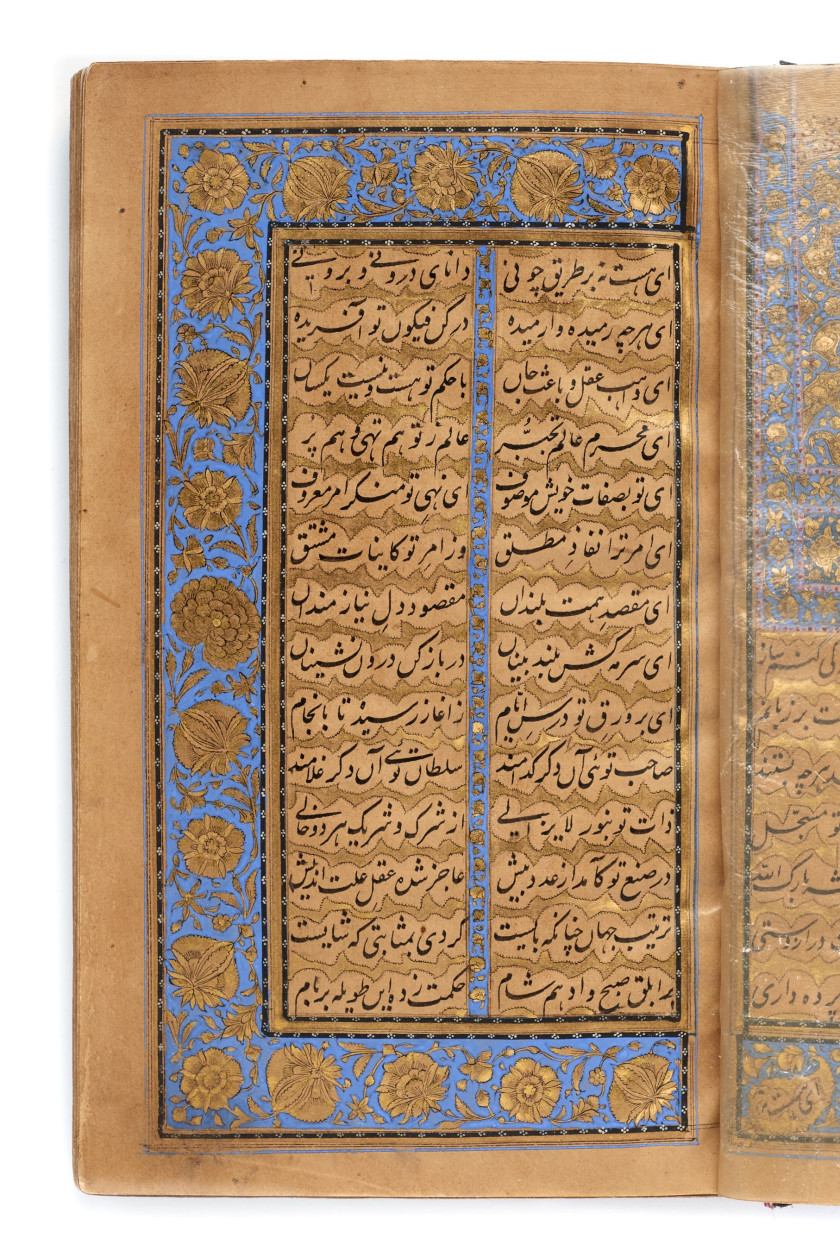 کی کنم ساز
ت بر زبانم
هر چه بستند
مسجل
بارک الله
درازدستی
پرده داری
ای هست نه بر طریق چونی دانای درونی و برونی
ای هرچه رمیده وارمیده در کن فیکون تو آفریده
ای واهب عقل و باعث جان با حکم تو هست و نیست یکسان
ای محرم عالم تحیّر عالم ز تو هم تهی و هم پر
ای تو بصفات خویش موصوف ای نهی تو منکر امر معروف
ای امر ترا نفاذِ مطلق وز امرِ تو کاینات مشتق
ای مقصدِ همت بلندان مقصود دلِ نیازمندان
ای سرمه کش بلند بینان در باز کن درون نشینان
ای بر ورق تو درس ایام ز اغاز رسیده تا بانجام
صاحب توئی آن دگر کدامند سلطان توئی آن دگر غلامند
ذات تو بنور لایزالی از شرک و شریک هر دو خالی
در صنع تو کآمد از عدد بیش عاجز شده عقل علت اندیش
ترتیب جهان چنانکه بایست کردی بمثابتی که شایست
بر ابلق صبح و ادهم شام حکمت زده این طویله بر بام